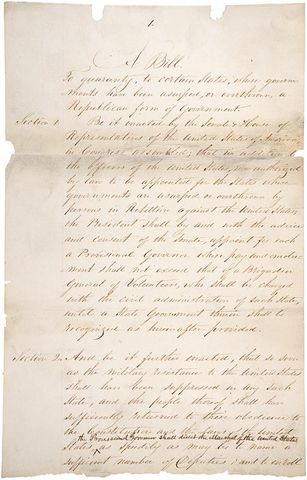 1
A Bill
To guaranty, to certain States, whose govern-
ments have been usurped, or overthrown, a
Republican form of Government.
Section 1. Be it enacted by the Senate & House of
Representatives of the United States of America
in Congress assembled; that in addition to
the Officers of the United States, now authorized
by law to be appointed for the States whose
governments are usurped or overthrown by
persons in Rebellion against the United States,
the President shall by and with the advice
and consent of the Senate, appoint for each
a Provisional Governor whose pay and emolu-
ment shall not exceed that of a Brigadier
General of Volunteers, who shall be charged
with the civil administration of such State,
until a State Government therein shall be
recognized as hereinafter provided.
Section 2. And be it further enacted, that so soon
as the military resistance to the United States
shall have been suppressed in any such
State, and the people thereof shall have
sufficiently returned to their obedience to
the Constitution and the laws of the United
the Provisional Governor shall direct the Marshal of the United States
States, as speedily as may be to name a
sufficient number of Deputies; and to enroll